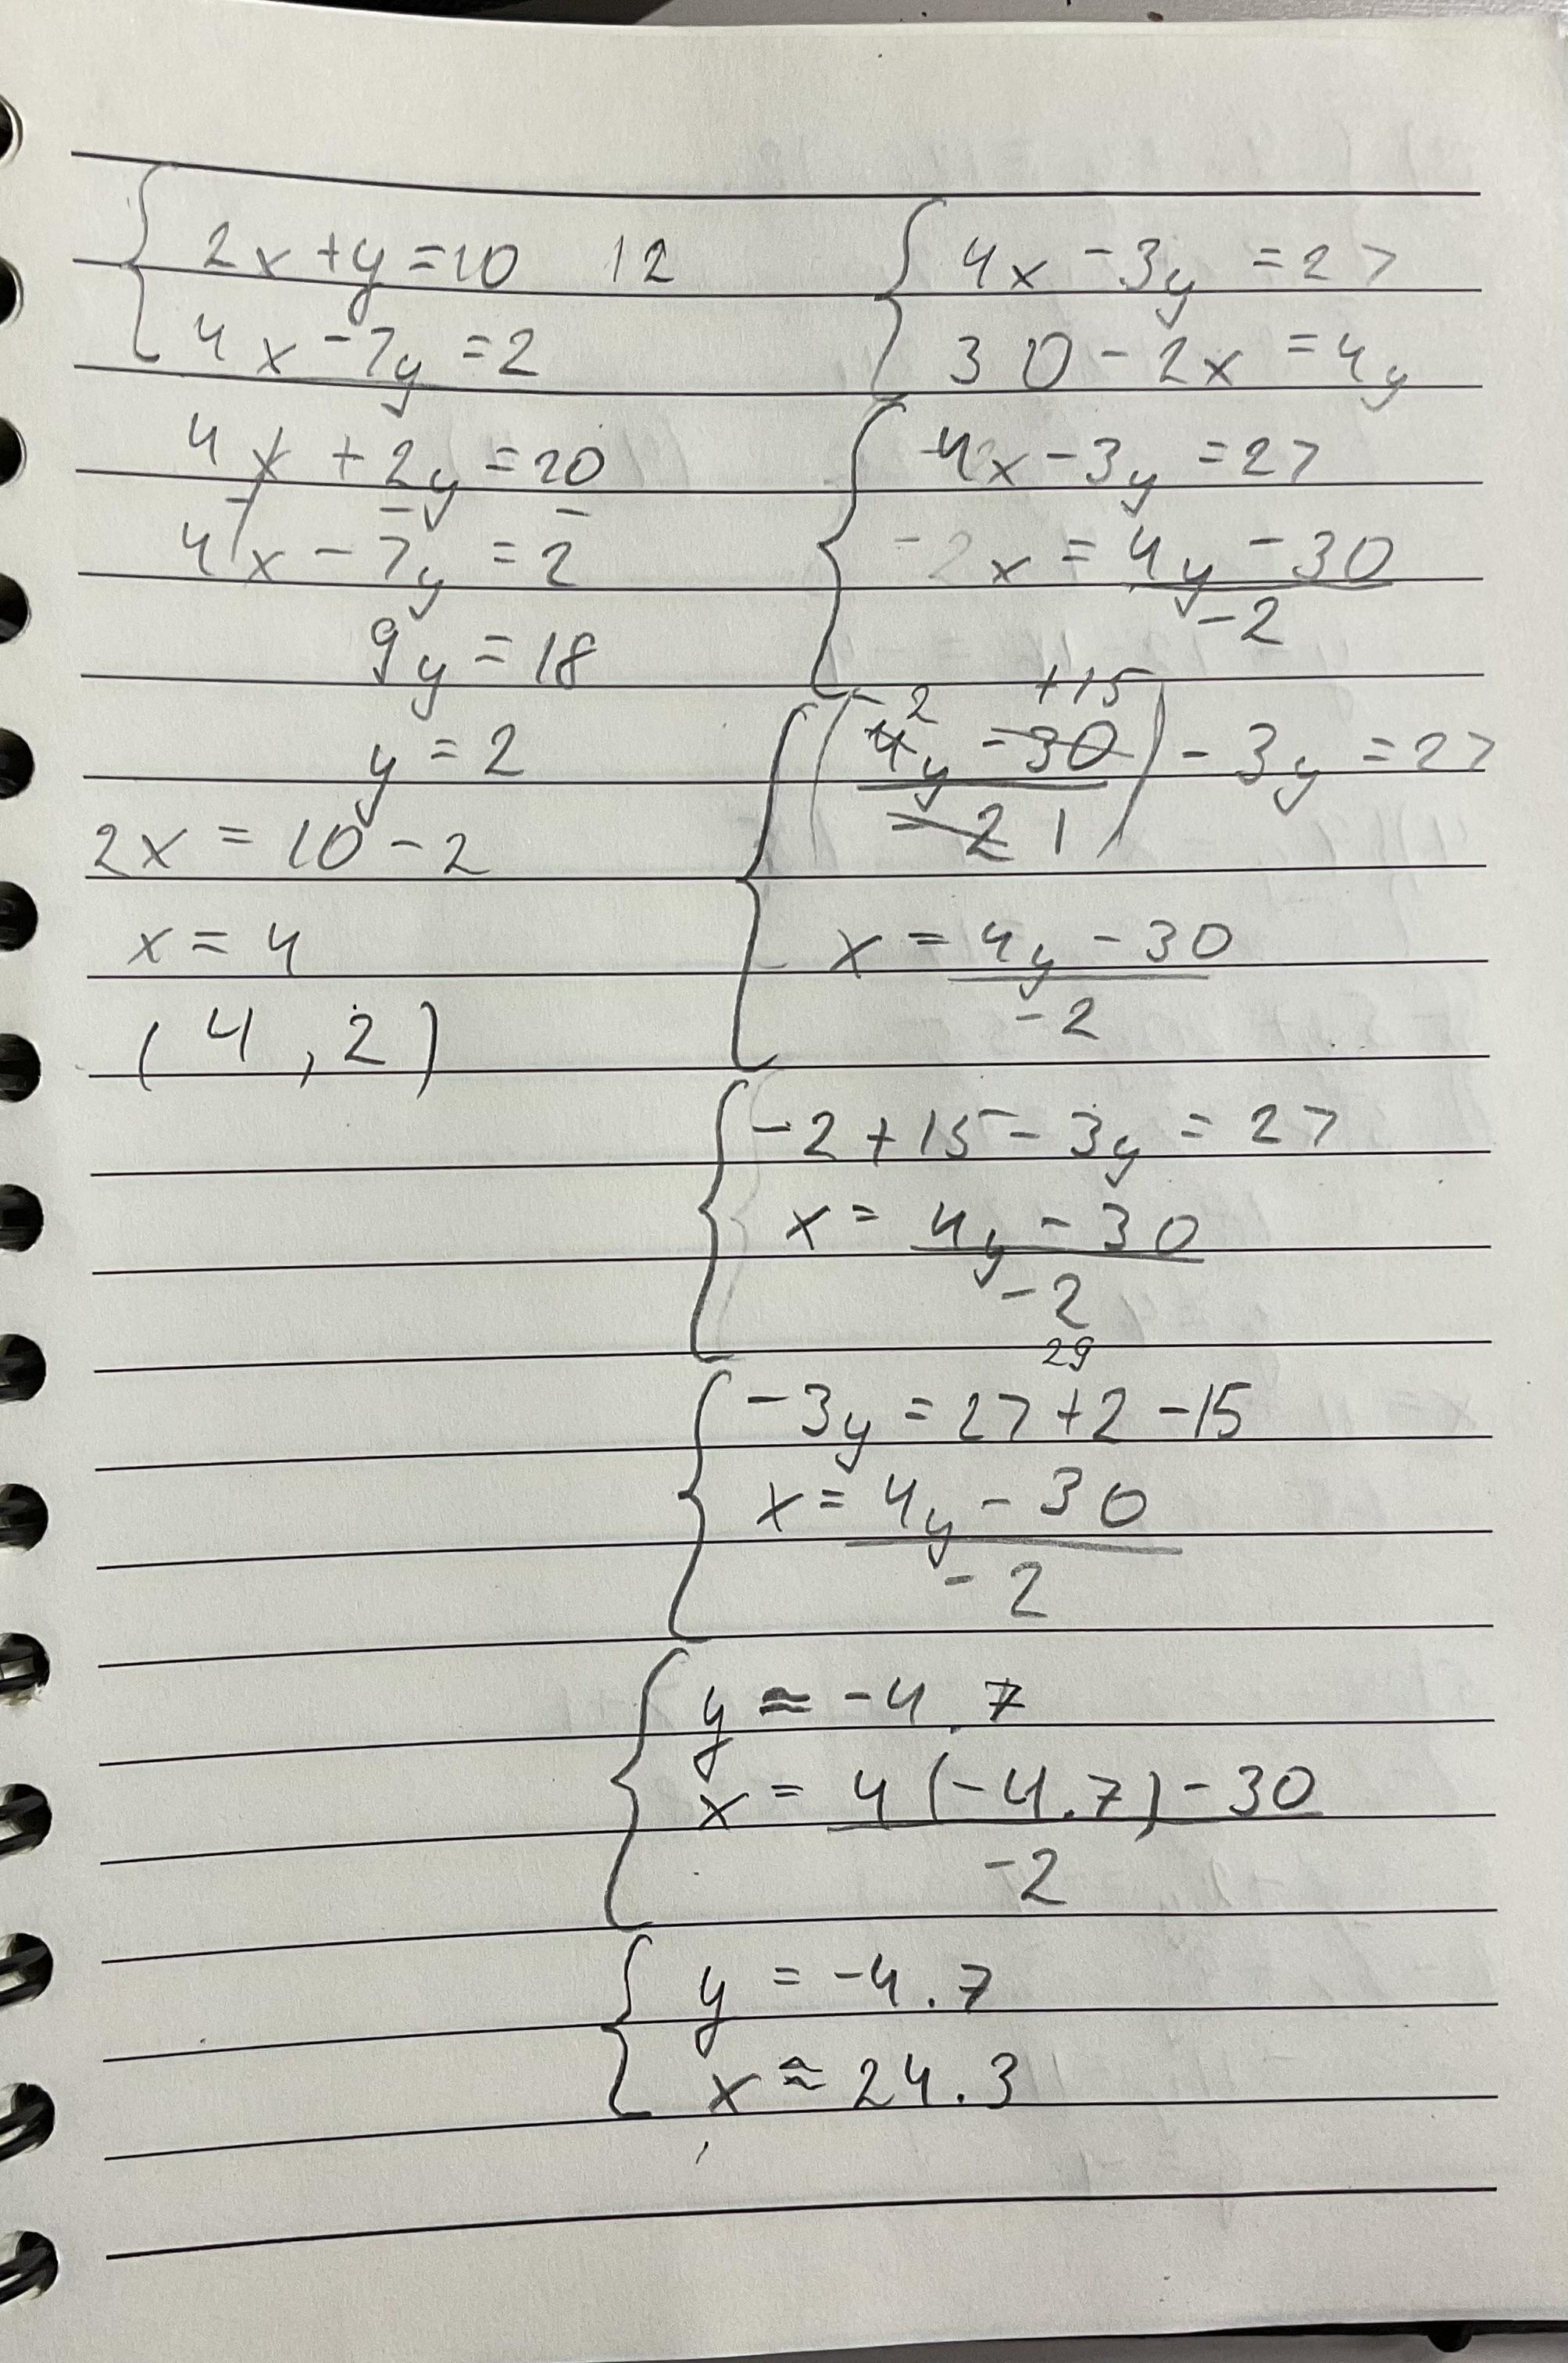 2x + y = 10 12
4x - 7y = 2
4x + 2y = 20
4x - 7y = 2
9y = 18
y = 2
2x = 10 - 2
x = 4
(4, 2)
4x - 3y = 27
30 - 2x = 4y
4x - 3y = 27
-2x = 4y - 30
-2
-2 +15
(4y - 30) - 3y = 27
-2 1
x = 4y - 30
-2
-2 + 15 - 3y = 27
x = 4y - 30
-2
29
-3y = 27 + 2 - 15
x = 4y - 30
-2
y ≈ -4.7
x = 4(-4.7) - 30
-2
y = -4.7
x ≈ 24.3